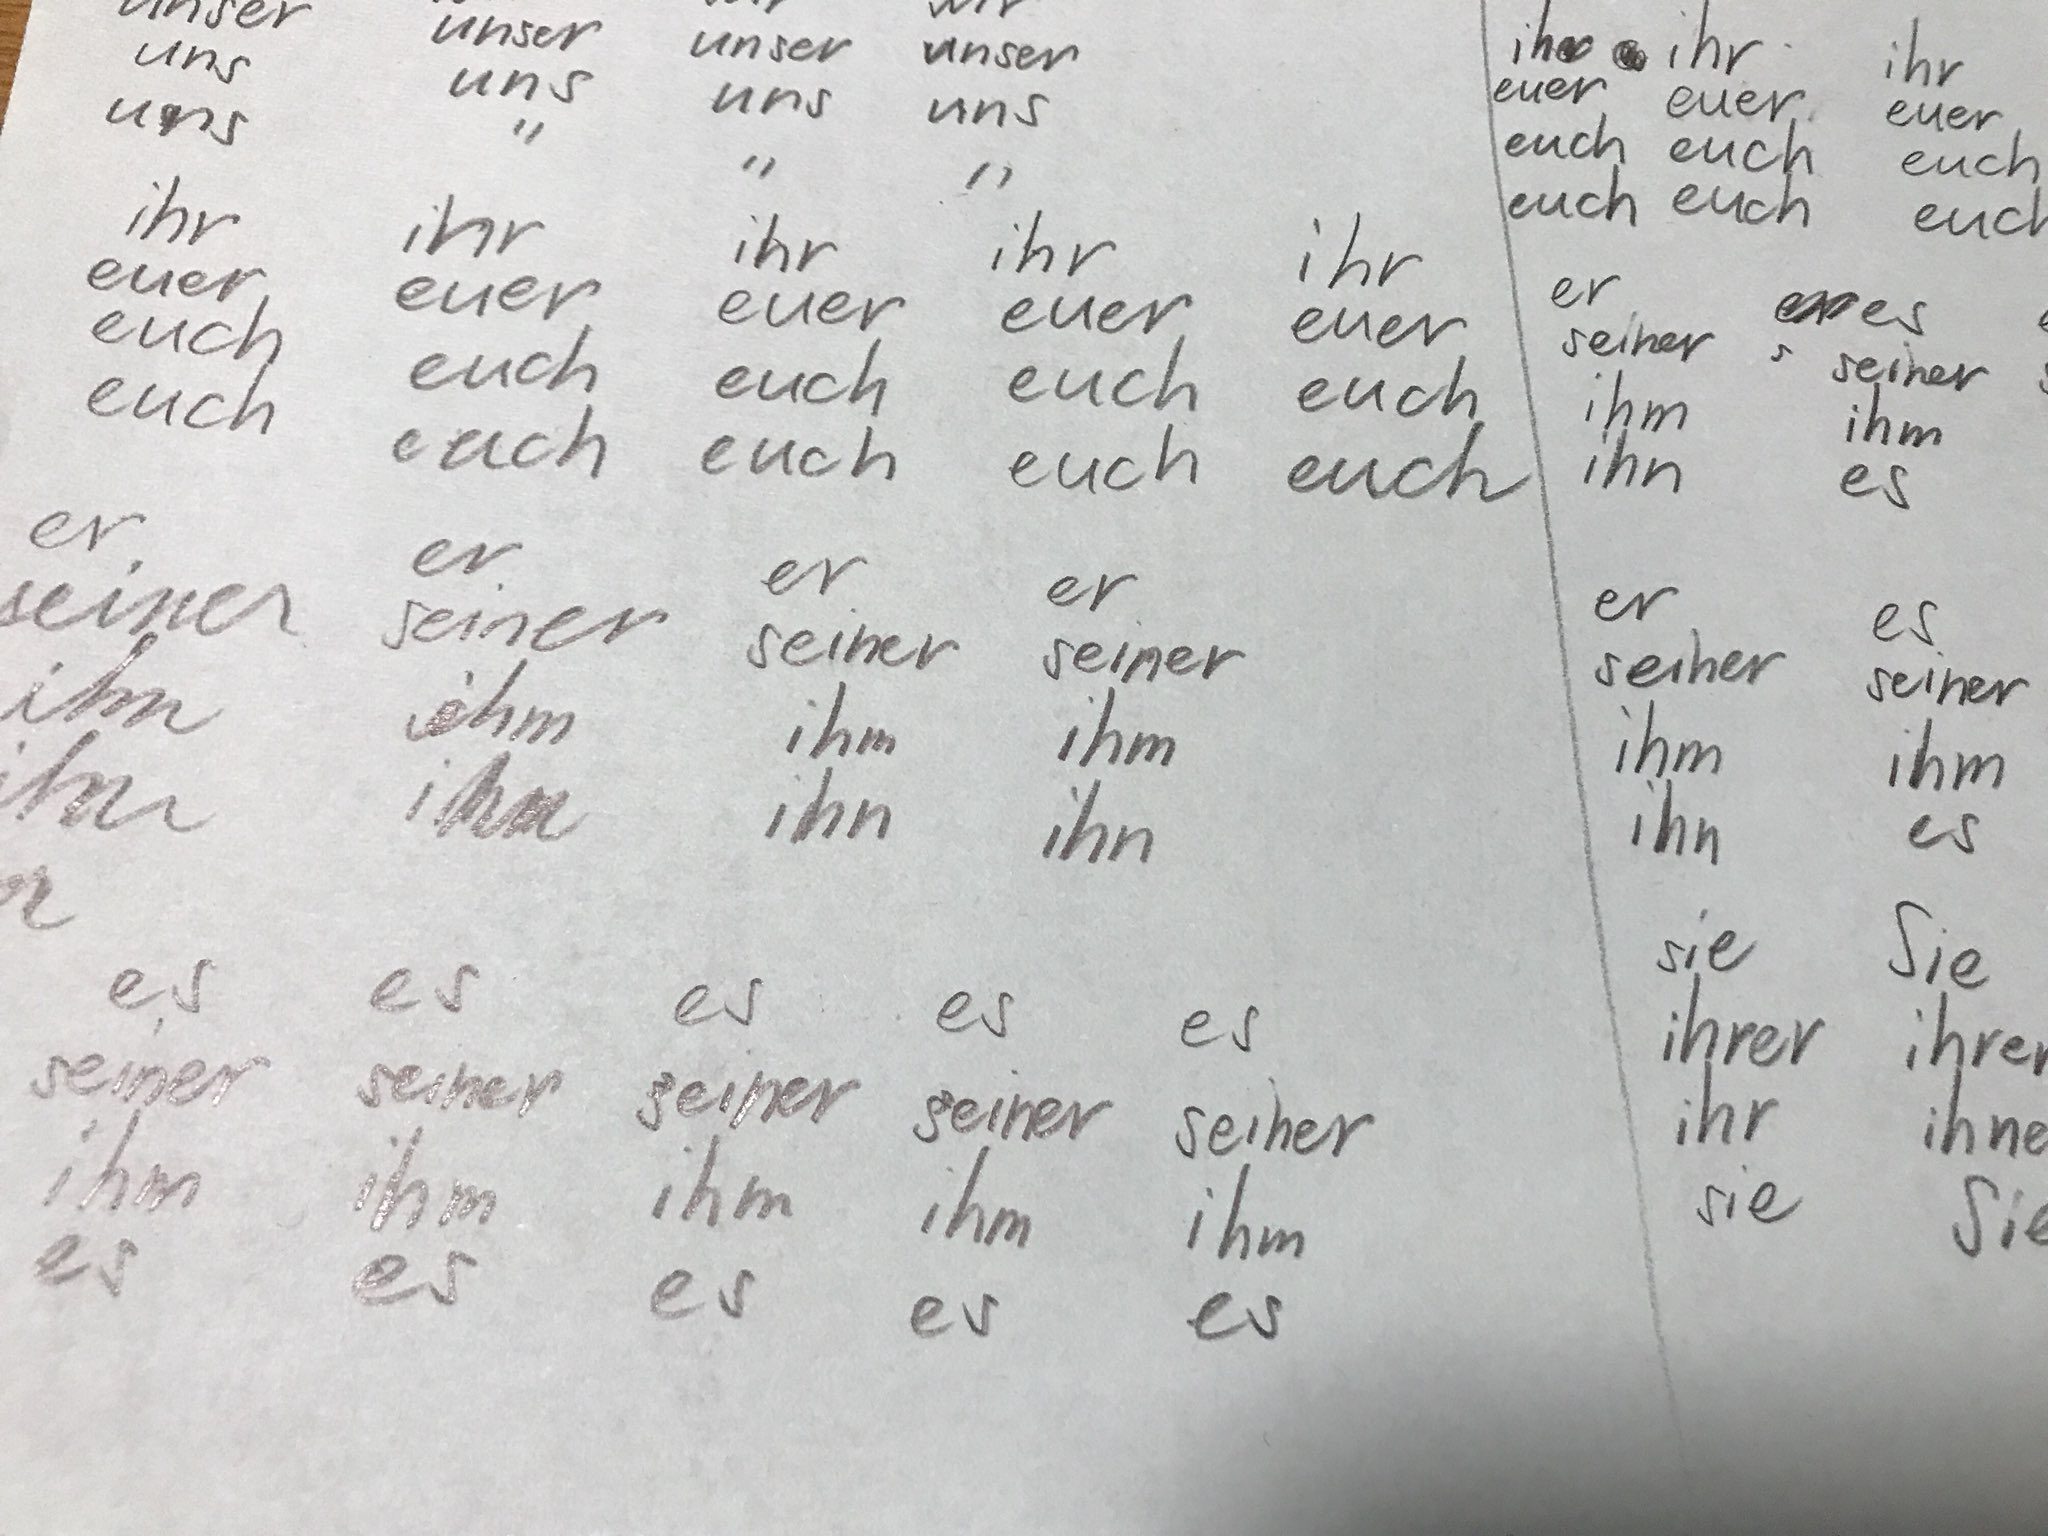 unser unser unser unser
uns uns uns uns
uns " " "
ihr ihr ihr ihr ihr
euer euer euer euer euer
euch euch euch euch euch
euch euch euch euch euch
er er er er
seiner seiner seiner seiner
ihm ihm ihm ihm
ihn ihn ihn ihn
es es es es es
seiner seiner seiner seiner seiner
ihm ihm ihm ihm ihm
es es es es es
ihr ihr ihr
euer euer euer
euch euch euch
euch euch euch
er es
seiner s seiner
ihm ihm
ihn es
er es
seiner seiner
ihm ihm
ihn es
sie Sie
ihrer ihrer
ihr ihne
sie Sie